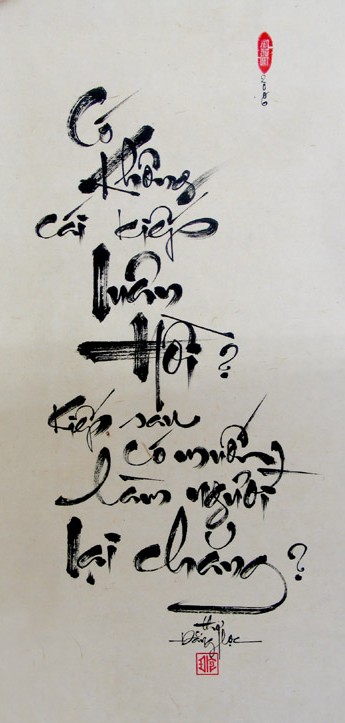 Có
Không
cái kiếp
luân
Hồi ?
Kiếp sau
có muốn
làm người
lại chăng ?